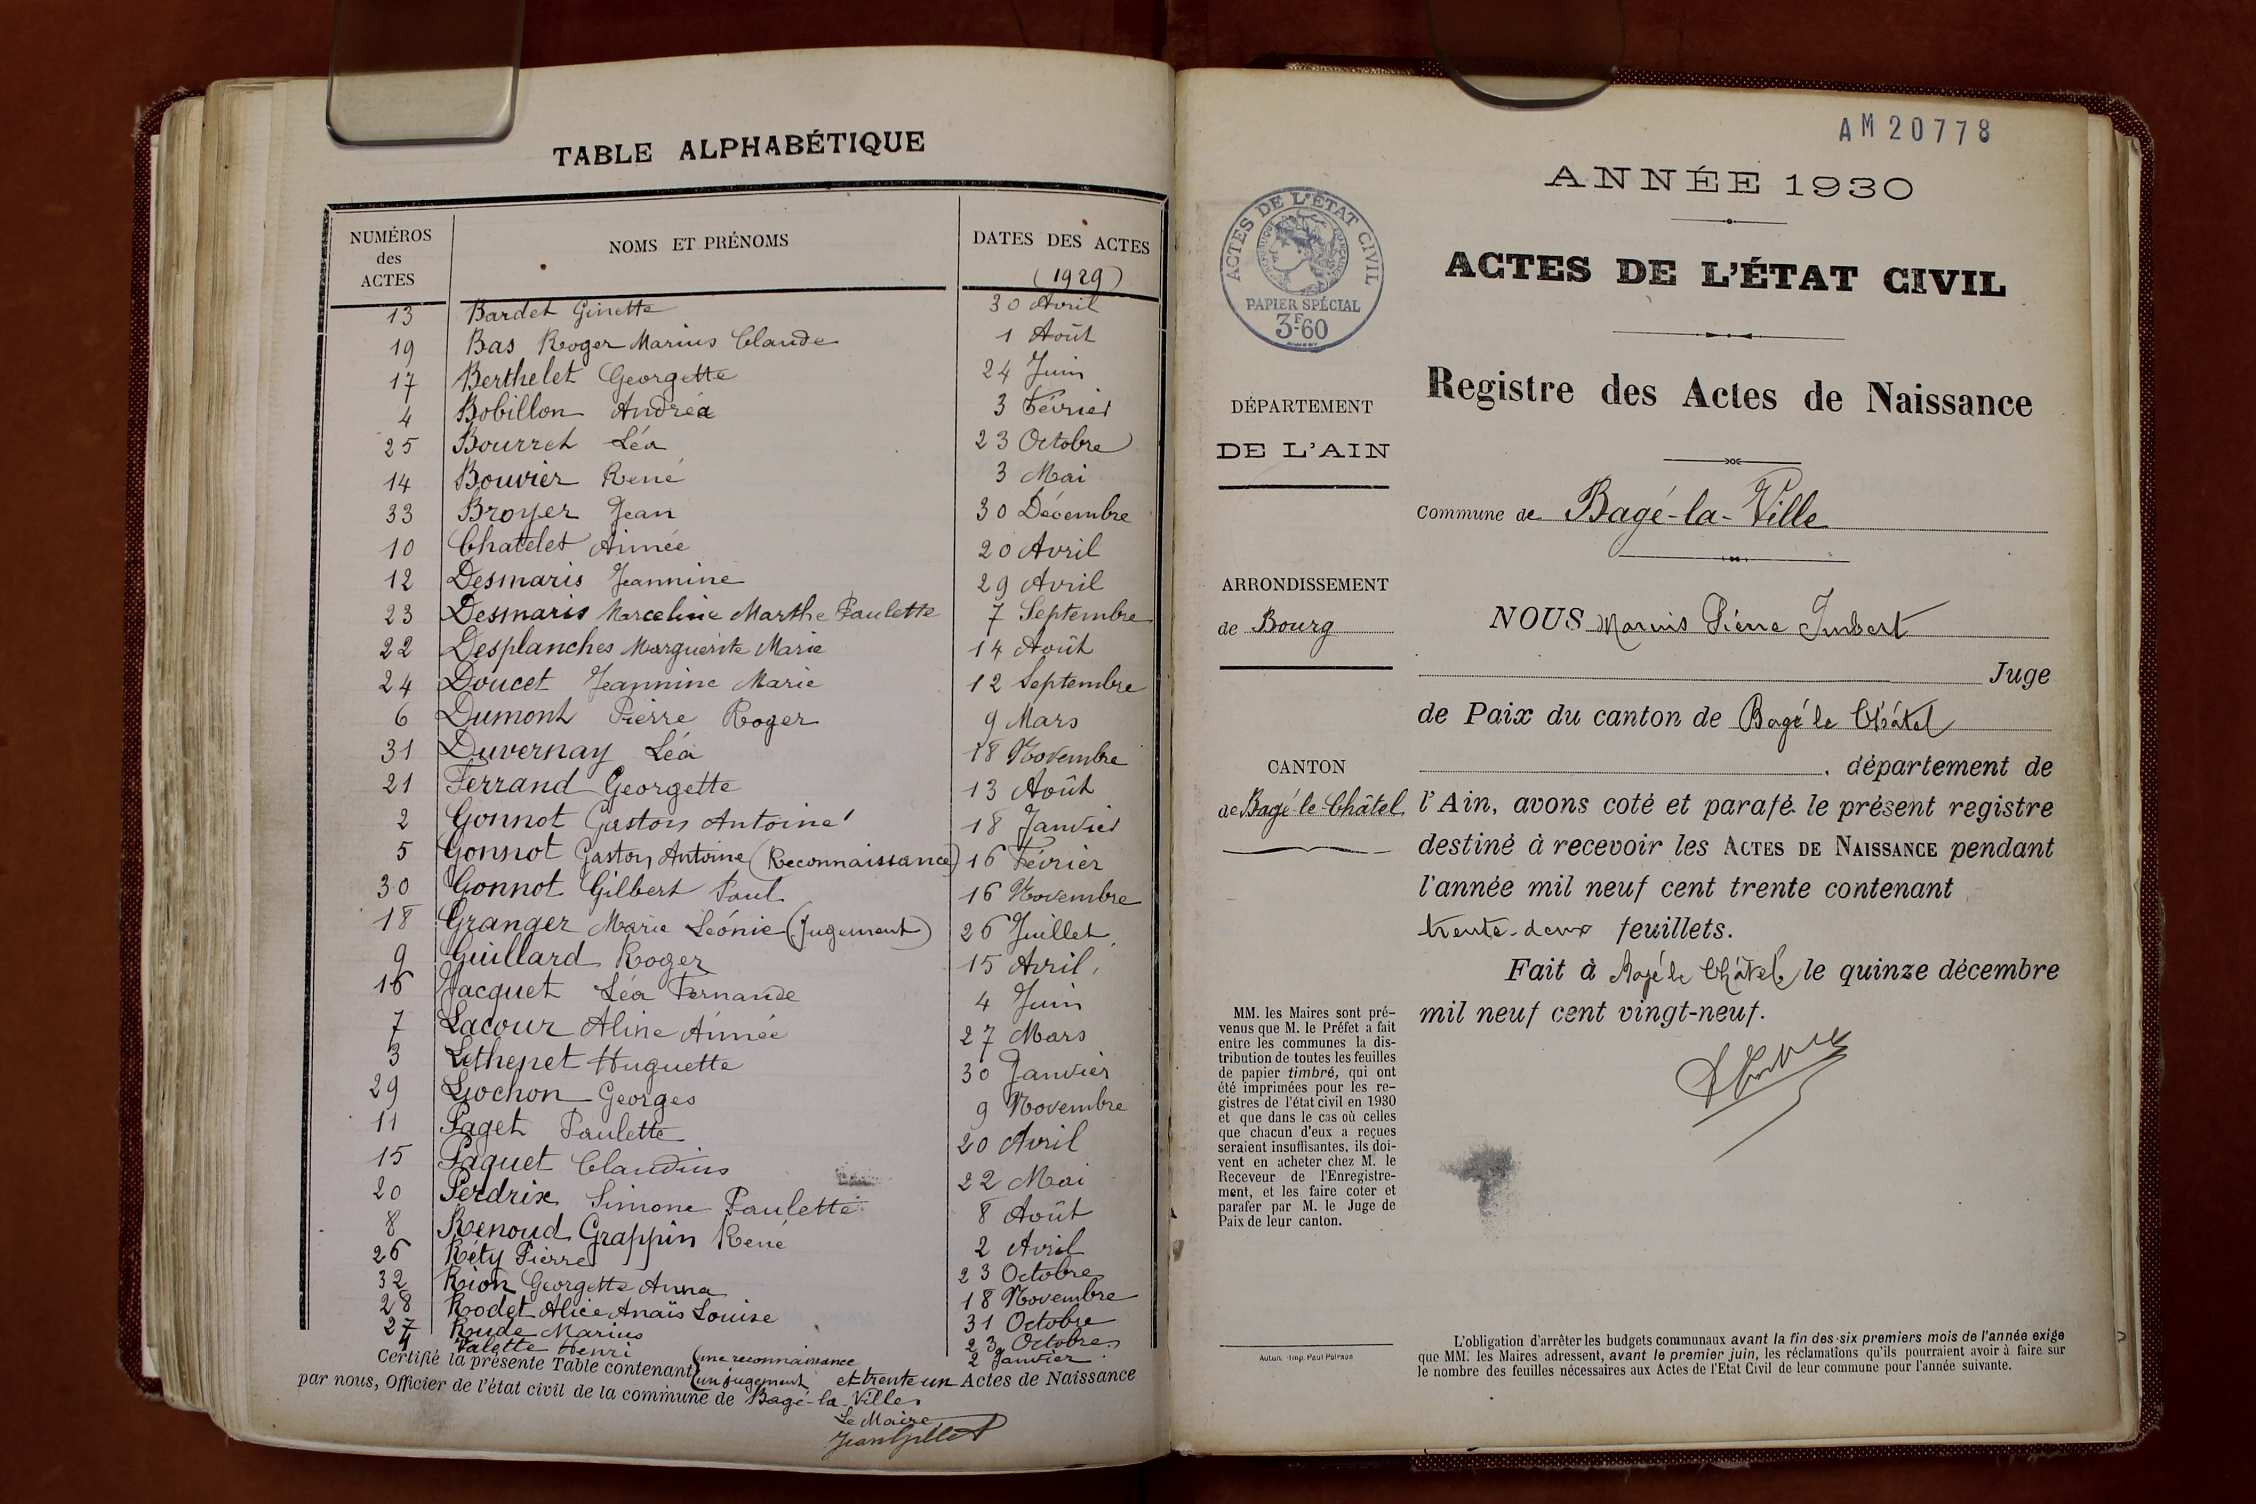 TABLE ALPHABÉTIQUE
NUMÉROS des ACTES NOMS ET PRÉNOMS DATES DES ACTES
(1929)
13 Bardet Ginette 30 Avril
19 Bas Roger Marius Claude 1 Août
17 Berthelet Georgette 24 Juin
4 Bobillon Andréa 3 Février
25 Bourret Léa 23 Octobre
14 Bouvier René 3 Mai
33 Broyer Jean 30 Décembre
10 Chatelet Aimée 20 Avril
12 Desmaris Jeannine 29 Avril
23 Desmaris Marceline Marthe Paulette 7 Septembre
22 Desplanches Marguerite Marie 14 Août
24 Doucet Jeannine Marie 12 Septembre
6 Dumont Pierre Roger 9 Mars
31 Duvernay Léa 18 Novembre
21 Ferrand Georgette 13 Août
2 Gonnot Gaston Antoine 18 Janvier
5 Gonnot Gaston Antoine (Reconnaissance) 16 Février
30 Gonnot Gilbert Paul 16 Novembre
18 Granger Marie Léonie (Jugement) 26 Juillet
9 Guillard Roger 15 Avril
16 Jacquet Léa Fernande 4 Juin
7 Lacour Aline Aimée 27 Mars
3 Lethenet Huguette 30 Janvier
29 Lochon Georges 9 Novembre
11 Paget Paulette 20 Avril
15 Paquet Claudius 22 Mai
20 Perdrix Simone Paulette 8 Août
8 Renoud Grappin René 2 Avril
26 Réty Pierre 23 Octobre
32 Rion Georgette Anna 18 Novembre
28 Rodet Alice Anaïs Louise 31 Octobre
27 Rude Marius 23 Octobre
1 Valette Henri 2 Janvier
Certifié la présente Table contenant (une reconnaissance
(un jugement et trente un Actes de Naissance
par nous, Officier de l'état civil de la commune de Bagé-la-Ville
Le Maire,
AM20778
ANNÉE 1930
ACTES DE L'ÉTAT CIVIL
PAPIER SPÉCIAL
3F-60
ACTES DE L'ÉTAT CIVIL
Registre des Actes de Naissance
DÉPARTEMENT
DE L'AIN
Commune de Bagé-la-Ville
ARRONDISSEMENT
de Bourg
CANTON
de Bagé le Châtel
NOUS Marius Pierre Imbert
Juge
de Paix du canton de Bagé le Châtel
, département de
l'Ain, avons coté et parafé le présent registre
destiné à recevoir les ACTES DE NAISSANCE pendant
l'année mil neuf cent trente contenant
trente-deux feuillets.
Fait à Bagé le Châtel, le quinze décembre
mil neuf cent vingt-neuf.
MM. les Maires sont pré-
venus que M. le Préfet a fait
entre les communes la dis-
tribution de toutes les feuilles
de papier timbré, qui ont
été imprimées pour les re-
gistres de l'état civil en 1930
et que dans le cas où celles
que chacun d'eux a reçues
seraient insuffisantes, ils doi-
vent en acheter chez M. le
Receveur de l'Enregistre-
ment, et les faire coter et
parafer par M. le Juge de
Paix de leur canton.
Autun. - Imp. Paul Poirson
L'obligation d'arrêter les budgets communaux avant la fin des six premiers mois de l'année exige
que MM. les Maires adressent, avant le premier juin, les réclamations qu'ils pourraient avoir à faire sur
le nombre des feuilles nécessaires aux Actes de l'Etat Civil de leur commune pour l'année suivante.